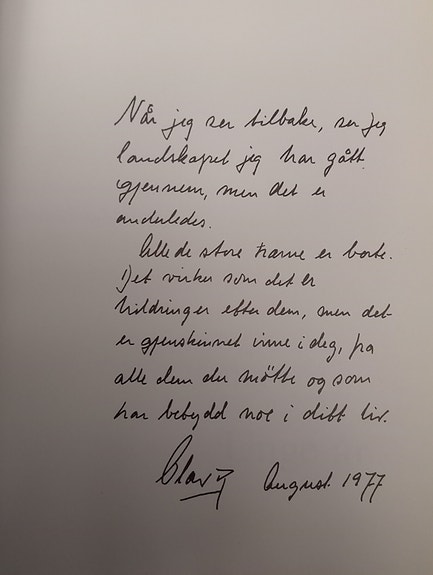 Når jeg ser tilbake, ser jeg
landskapet jeg har gått
gjennem, men det er
anderledes.
Alle de store trærne er borte.
Det virker som det er
hildringer efter dem, men det
er gjenskinnet inne i deg, fra
alle dem du møtte og som
har betydd noe i ditt liv.
Olav
August 1977